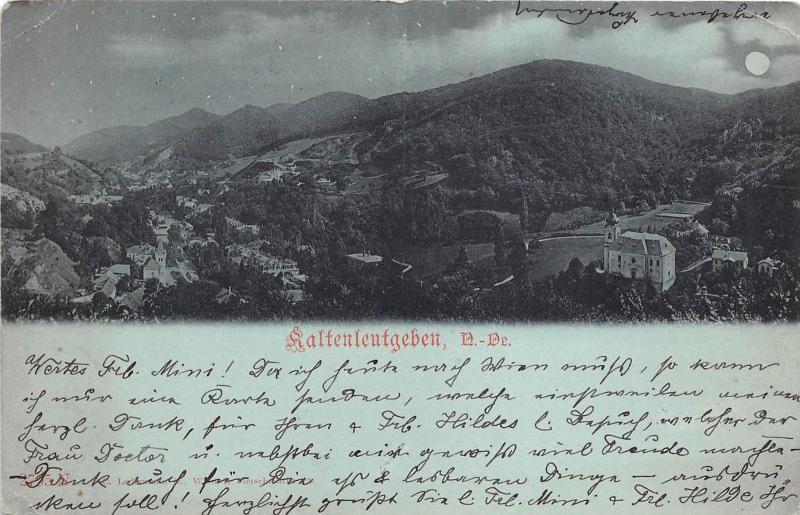 Kaltenleutgeben, N.-Oe.
Wertes Frl. Mini! Da ich heute nach Wien muß, so kann
ich nur eine Karte senden, welche einstweilen meinen
herzl. Dank, für Ihren & Frl. Hildes l. Besuch, welcher der
Frau Doctor u. nebstbei mir gewiß viel Freude machte –
– Dank auch für Die eß & lesbaren Dinge – ausdrü
cken soll! Herzlichst grüßt Sie l. Frl. Mini & Frl. Hilde Ihr